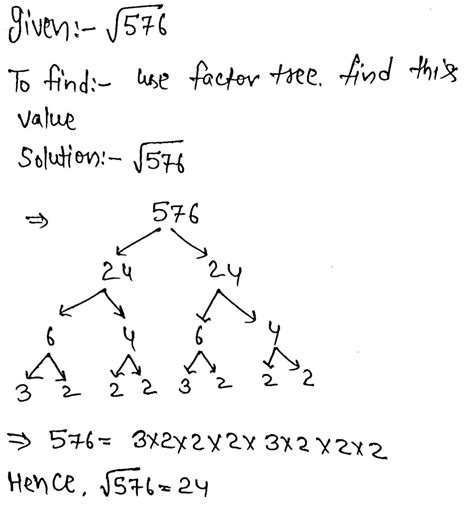 Given:- √576
To find:- use factor tree. find this
value
Solution:- √576
⇒ 576
24 24
6 4 6 4
3 2 2 2 3 2 2 2
⇒ 576 = 3×2×2×2×3×2×2×2
Hence, √576 = 24